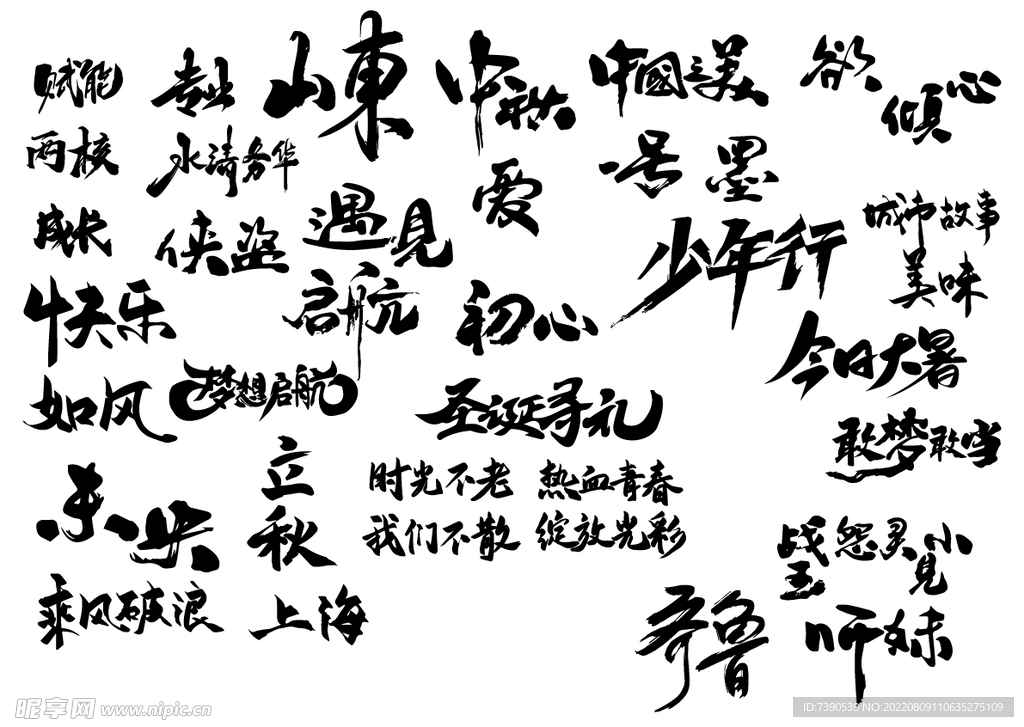 赋能
专业
山東
中秋
中國之美
欲
傾心
两核
水清务华
爱
一号 墨
成长
侠盗
遇见
少年行
城市故事
美味
快乐
启航
初心
今日大暑
如风
梦想启航
圣诞寻礼
敢梦敢当
未央
立秋
时光不老 热血青春
我们不散 绽放光彩
战王
怨灵
小见
乘风破浪
上海
齐鲁
昵图网 www.nipic.cn
ID:7390539 NO:20220809110635275109